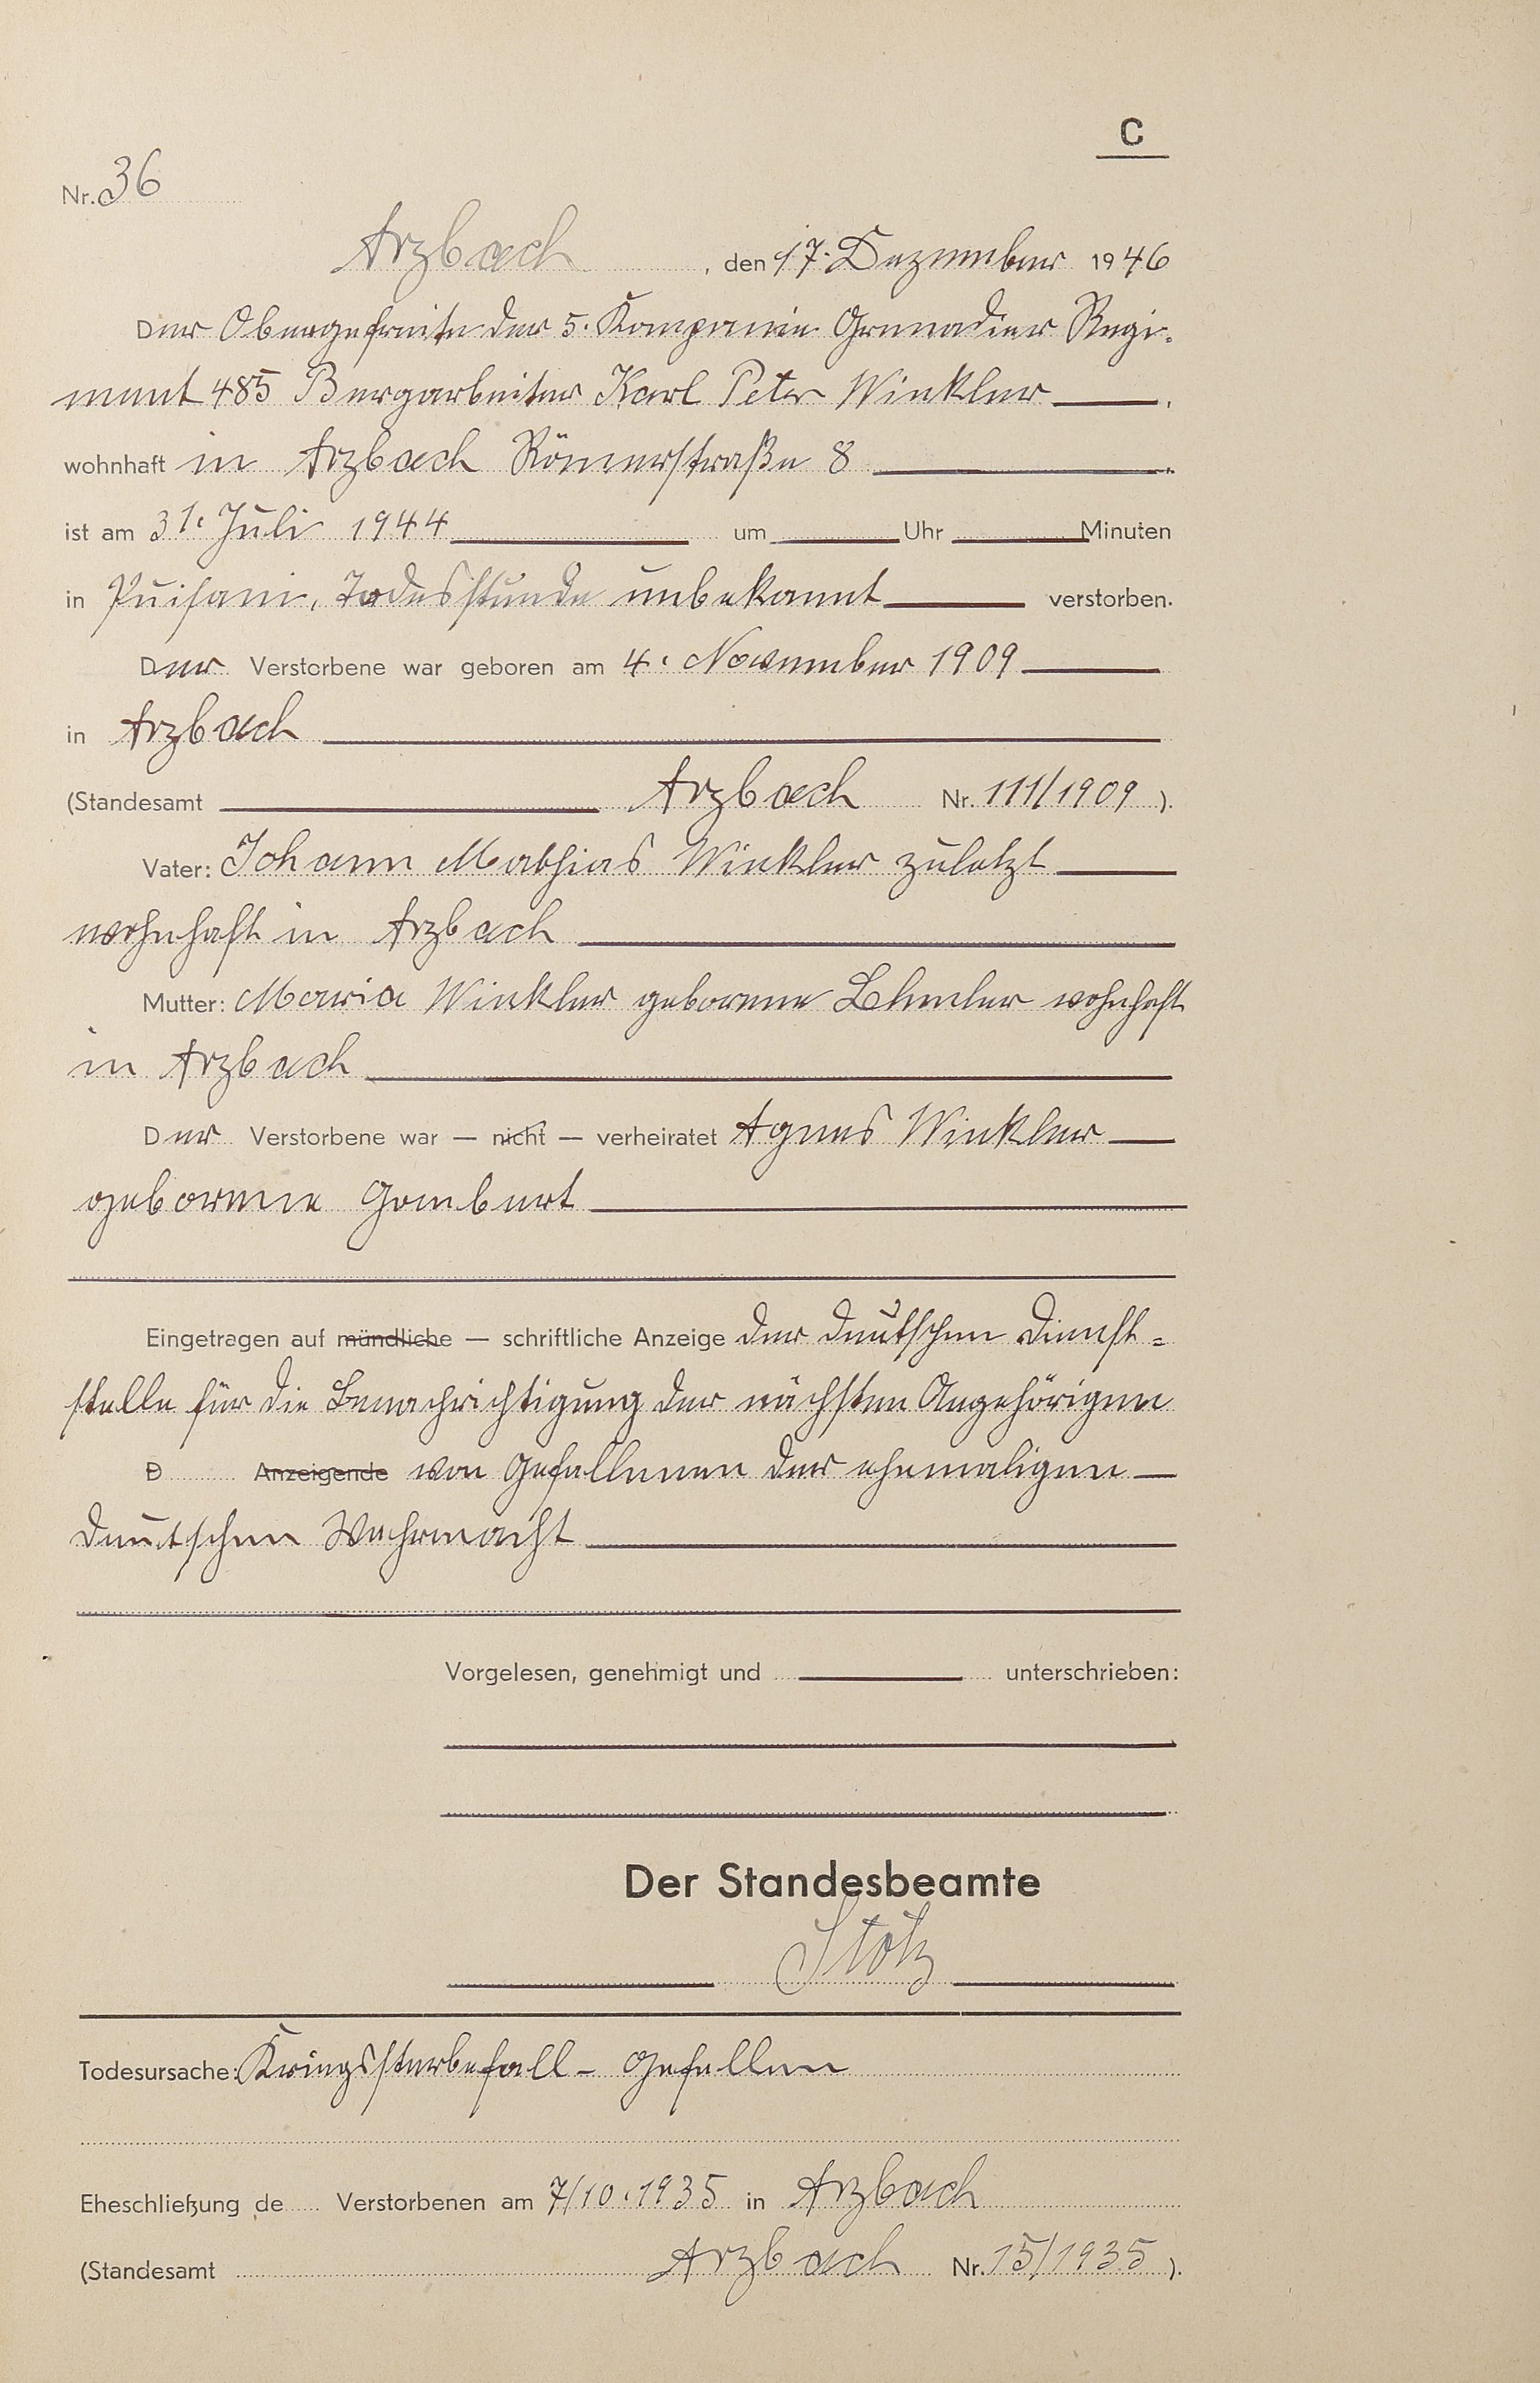 C
Nr. 36
Arzbach, den 17. Dezember 1946
Der Obergefreite der 5. Kompanie Grenadier Regi-
ment 485 Bergarbeiter Karl Peter Winkler
wohnhaft in Arzbach Römerstraße 8
ist am 31. Juli 1944 um Uhr Minuten
in Puisani, Todesstunde unbekannt verstorben.
Der Verstorbene war geboren am 4. November 1909
in Arzbach
(Standesamt Arzbach Nr. 111/1909).
Vater: Johann Mathias Winkler zuletzt
wohnhaft in Arzbach
Mutter: Maria Winkler geborene wohnhaft
in Arzbach
Der Verstorbene war — nicht — verheiratet Agnes Winkler
geborene Gombert
Eingetragen auf mündliche — schriftliche Anzeige der deutschen Dienst=
stelle für die Benachrichtigung der nächsten Angehörigen
D Anzeigende von Gefallenen der ehemaligen
deutschen Wehrmacht
Vorgelesen, genehmigt und unterschrieben:
Der Standesbeamte
Stötz
Todesursache: Kriegssterbefall – Gefallen
Eheschließung de Verstorbenen am 7/10.1935 in Arzbach
(Standesamt Arzbach Nr. 15/1935).